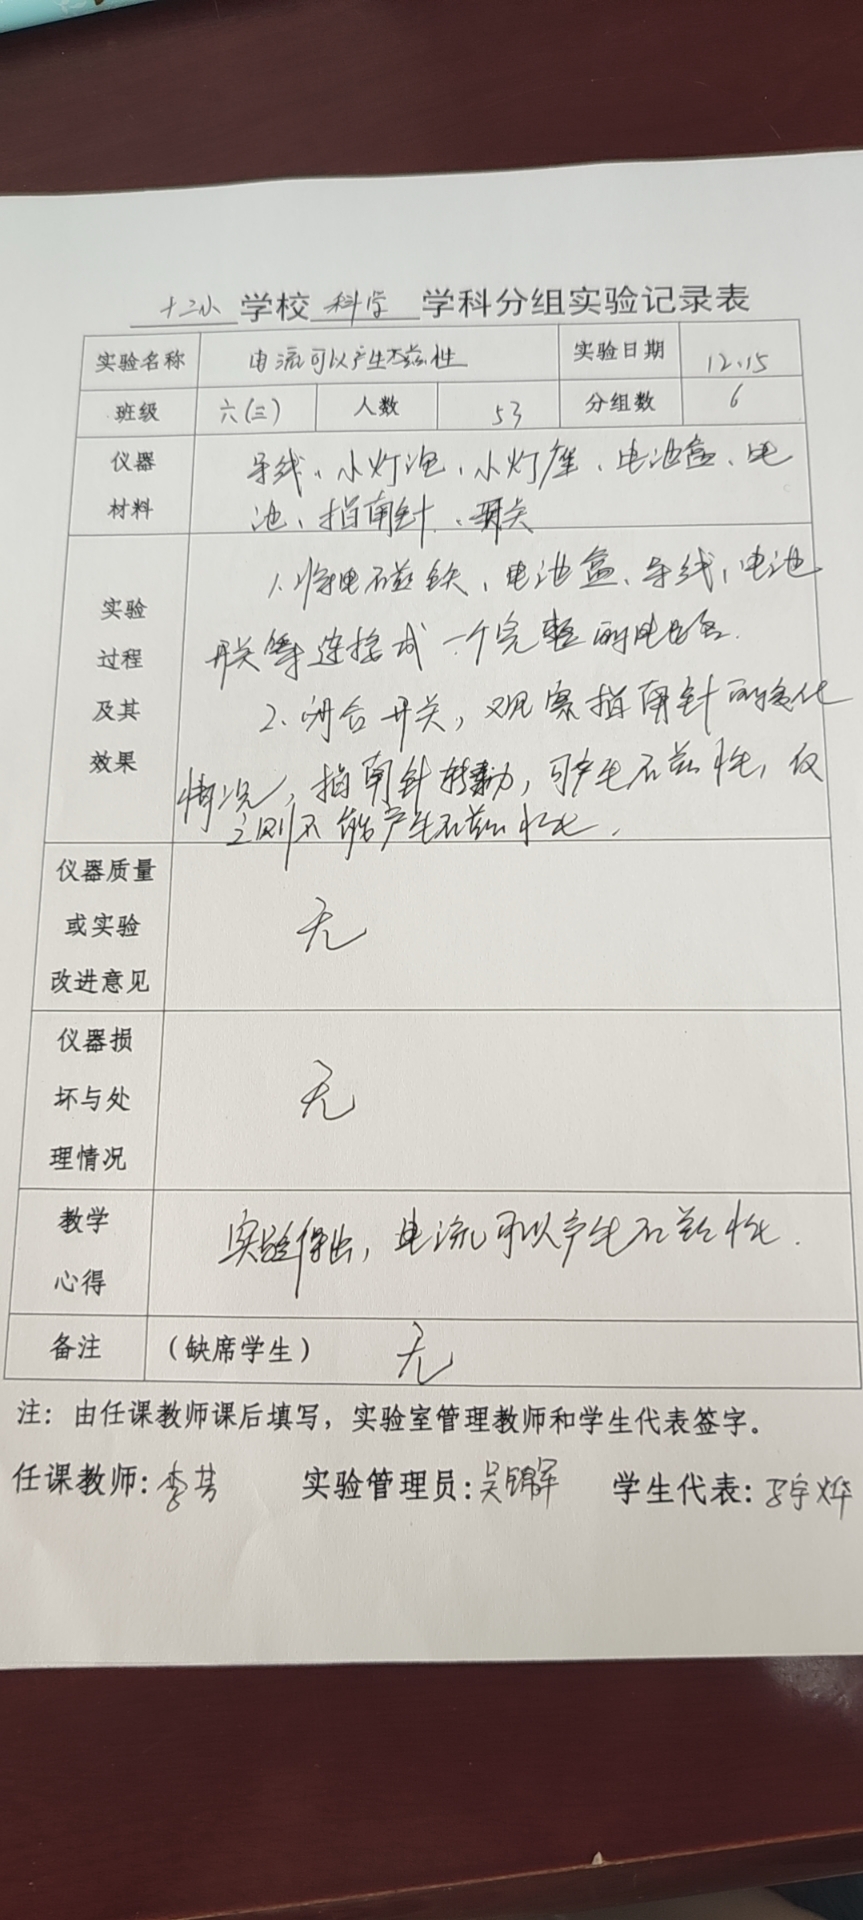 十二小 学校 科学 学科分组实验记录表
实验名称 电流可以产生磁性 实验日期 12.15
班级 六(三) 人数 53 分组数 6
仪器材料 导线、小灯泡、小灯座、电池盒、电
池、指南针、开关
实验过程及其效果 1.将电磁铁、电池盒、导线、电池
开关等连接成一个完整的电路.
2.闭合开关,观察指南针的变化
情况,指南针转动,可产生磁性,反
之则不能产生磁性.
仪器质量或实验改进意见 无
仪器损坏与处理情况 无
教学心得 实验得出,电流可以产生磁性.
备注 (缺席学生) 无
注:由任课教师课后填写,实验室管理教师和学生代表签字。
任课教师:李芸 实验管理员:吴锦军 学生代表:宇烨